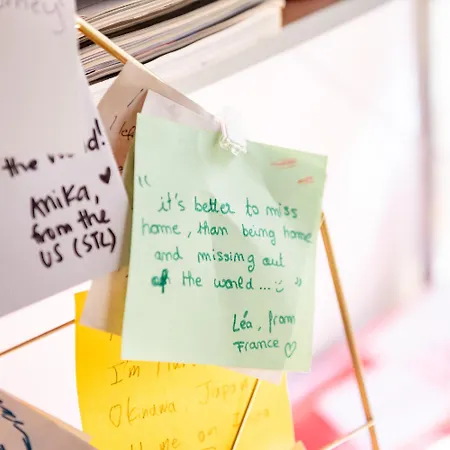 the
ANIKA,
from the
US (STL)
" it's better to miss
home, than being home
and missing out
of the world... "
Léa, from
France
I'm
Okinawa, Japan
on